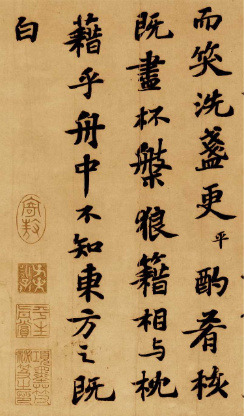 而笑洗盞更平酌肴核
既盡杯槃狼籍相与枕
藉乎舟中不知東方之既
白